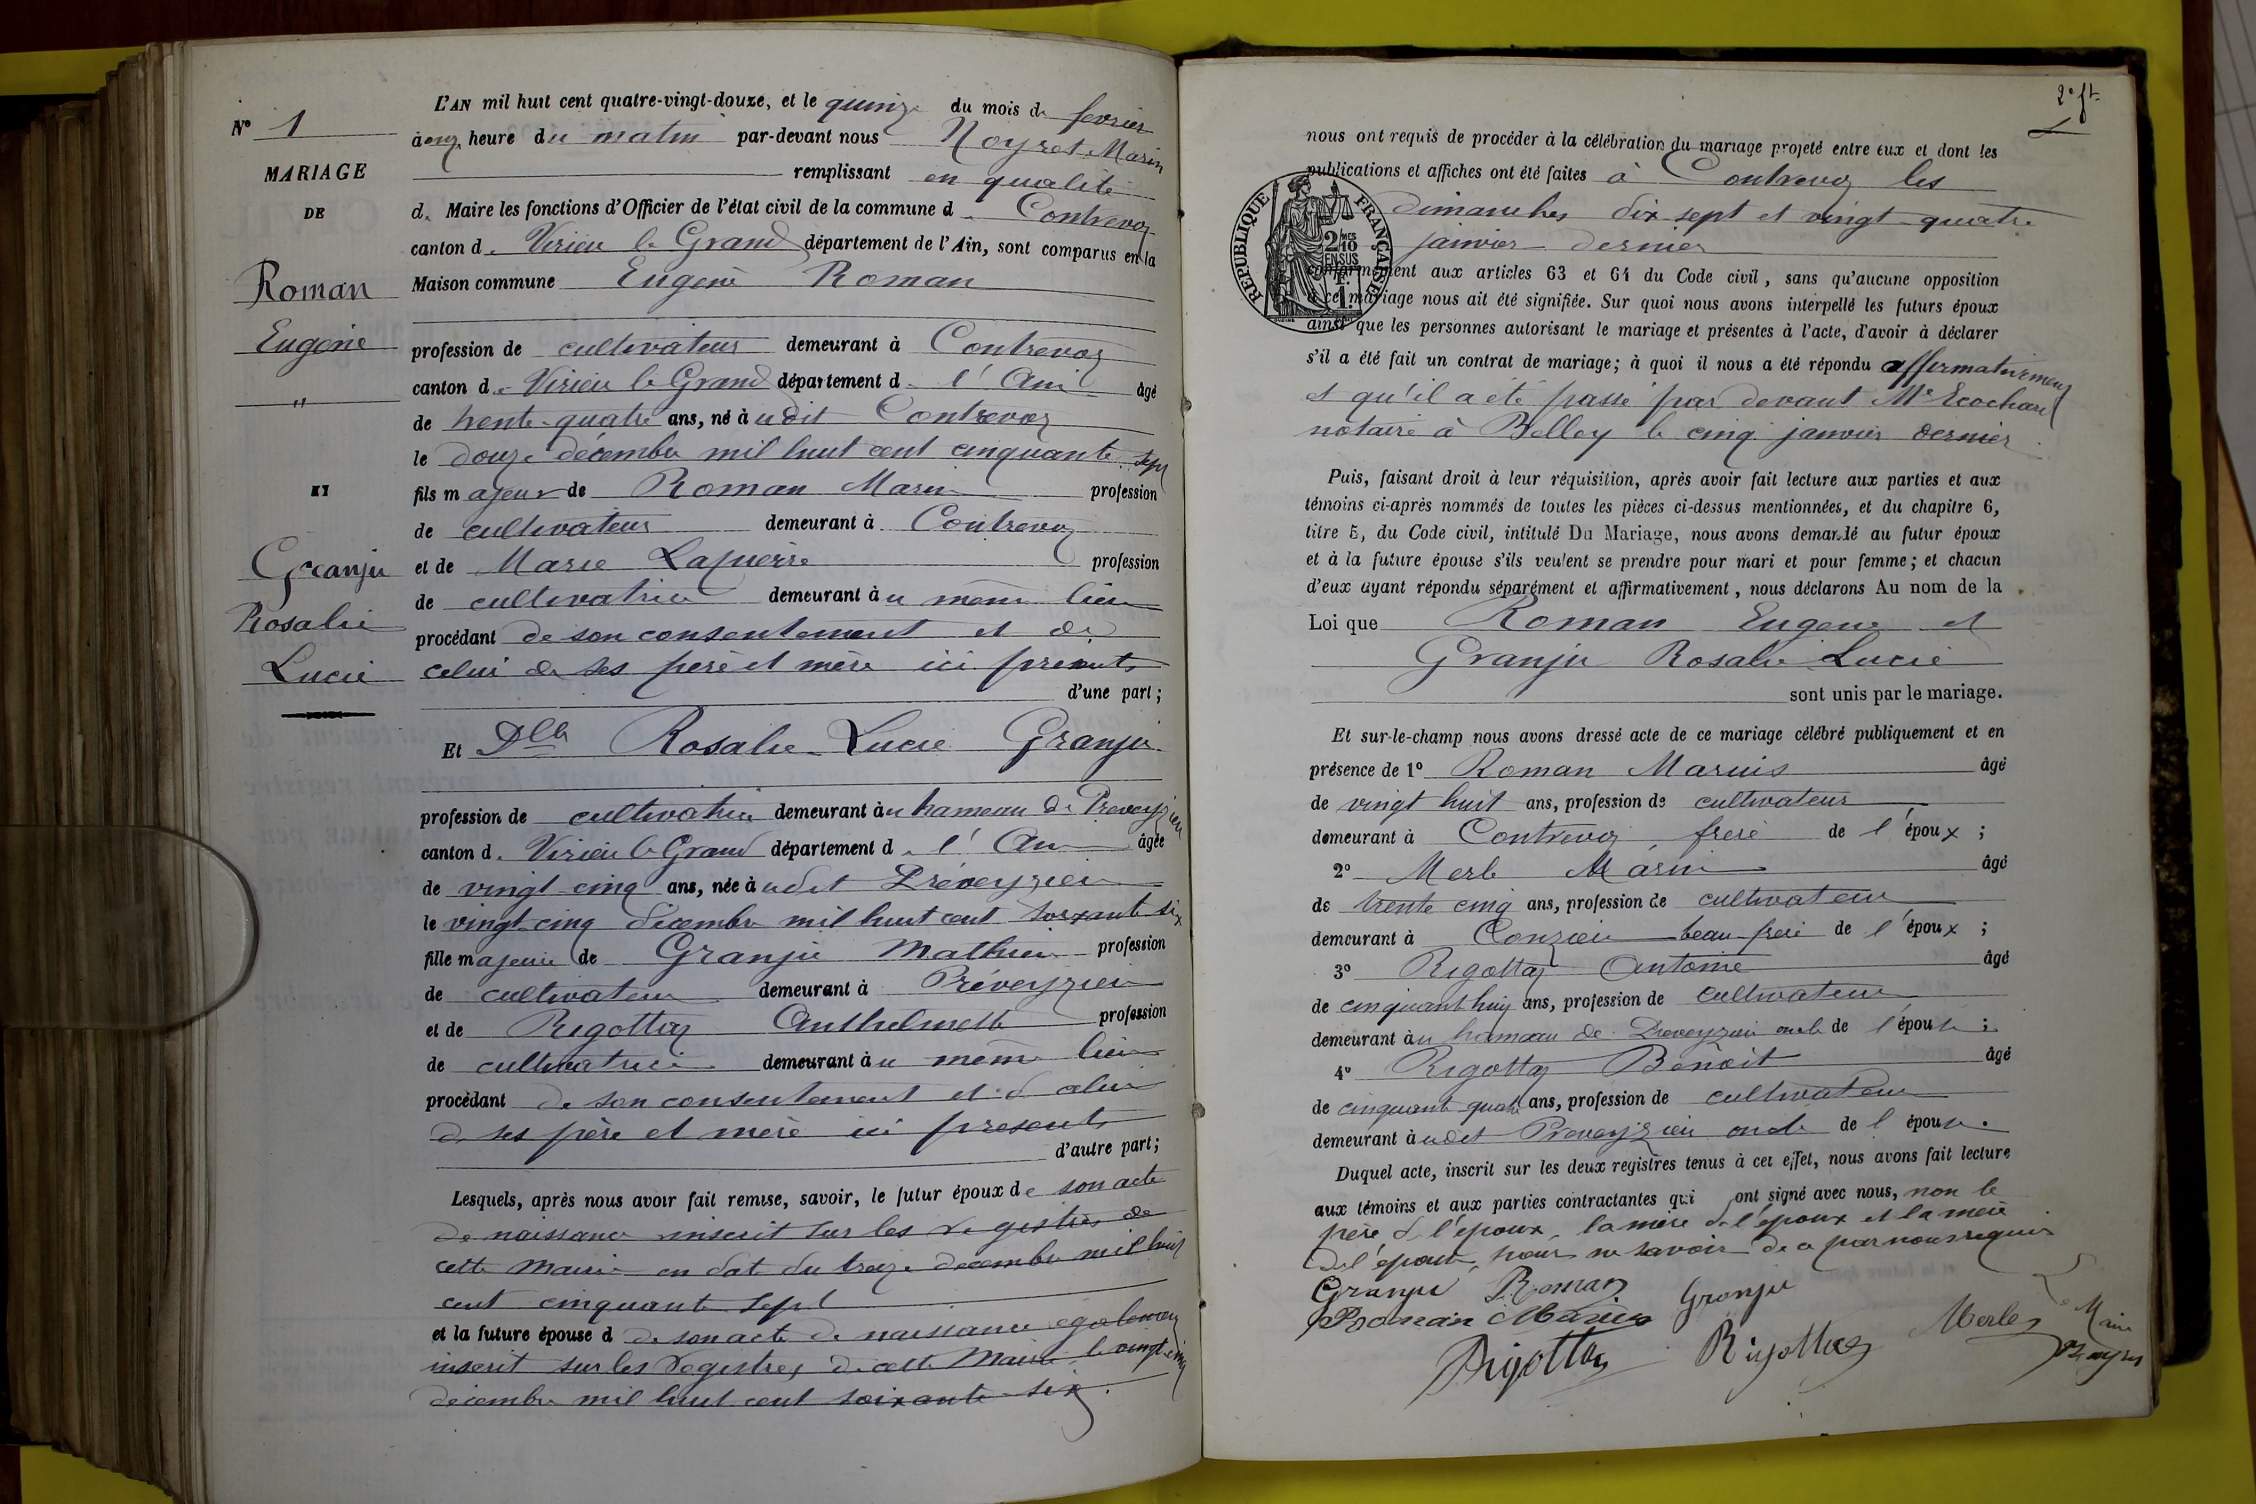 N° 1
MARIAGE
DE
Roman
Eugène
"
ET
Granju
Rosalie
Lucie
L'AN mil huit cent quatre-vingt-douze, et le quinze du mois de fevrier
à onze heure du matin par-devant nous Noyret Marin
remplissant en qualité
de Maire les fonctions d'Officier de l'état civil de la commune de Contrevoz
canton de Virieu le Grand département de l'Ain, sont comparus en la
Maison commune Eugène Roman
profession de cultivateur demeurant à Contrevoz
canton de Virieu le Grand département de l'Ain âgé
de trente-quatre ans, né audit Contrevoz
le douze décembre mil huit cent cinquante sept
fils majeur de Roman Marin profession
de cultivateur demeurant à Contrevoz
et de Marie Lapierre profession
de cultivatrice demeurant au même lieu
procédant de son consentement et de
celui de ses père et mère ici présents
d'une part;
Et Dlle Rosalie Lucie Granju
profession de cultivatrice demeurant au hameau de Preveyzieu
canton de Virieu le Grand département de l'Ain âgée
de vingt cinq ans, née audit Préveyzieu
le vingt-cinq décembre mil huit cent soixante six
fille majeure de Granju Mathieu profession
de cultivateur demeurant à Préveyzieu
et de Rigottaz Anthelmette profession
de cultivatrice demeurant au même lieu
procédant de son consentement et de celui
de ses père et mère ici présents
d'autre part;
Lesquels, après nous avoir fait remise, savoir, le futur époux de son acte
de naissance inscrit sur les registres de
cette Mairie en date du treize décembre mil huit
cent cinquante sept
et la future épouse d de son acte de naissance egalement
inscrit sur les registres de cette Mairie le vingt-cinq
décembre mil huit cent soixante-six.
2e ft.
nous ont requis de procéder à la célébration du mariage projeté entre eux et dont les
publications et affiches ont été faites à Contrevoz les
dimanches dix sept et vingt-quatre
janvier dernier
RÉPUBLIQUE FRANÇAISE
2/10 MES
EN SUS
1 F.
conformément aux articles 63 et 64 du Code civil, sans qu'aucune opposition
à ce mariage nous ait été signifiée. Sur quoi nous avons interpellé les futurs époux
ainsi que les personnes autorisant le mariage et présentes à l'acte, d'avoir à déclarer
s'il a été fait un contrat de mariage; à quoi il nous a été répondu affirmativement
et qu'il a été passé par devant Me Ecochard
notaire à Belley le cinq janvier dernier.
Puis, faisant droit à leur réquisition, après avoir fait lecture aux parties et aux
témoins ci-après nommés de toutes les pièces ci-dessus mentionnées, et du chapitre 6,
titre 5, du Code civil, intitulé Du Mariage, nous avons demandé au futur époux
et à la future épouse s'ils veulent se prendre pour mari et pour femme; et chacun
d'eux ayant répondu séparément et affirmativement, nous déclarons Au nom de la
Loi que Roman Eugene et
Granju Rosalie Lucie
sont unis par le mariage.
Et sur-le-champ nous avons dressé acte de ce mariage célébré publiquement et en
présence de 1° Roman Marius âgé
de vingt huit ans, profession de cultivateur
demeurant à Contrevoz frère de l'époux;
2° Merle Marin âgé
de trente cinq ans, profession de cultivateur
demeurant à Conzieu beau-frère de l'époux;
3° Rigottaz Antoine âgé
de cinquant huit ans, profession de cultivateur
demeurant au hameau de Preveyzieu oncle de l'épouse;
4° Rigottaz Benoit âgé
de cinquante quatre ans, profession de cultivateur
demeurant audit Preveyzieu oncle de l'épouse.
Duquel acte, inscrit sur les deux registres tenus à cet effet, nous avons fait lecture
aux témoins et aux parties contractantes qui ont signé avec nous, non le
père de l'époux, la mère de l'époux et la mère
de l'épouse pour ne savoir de ce par nous requis
Granju Roman Granju
Roman Marius Merle Maire
Rigottaz Rigottaz Noyret